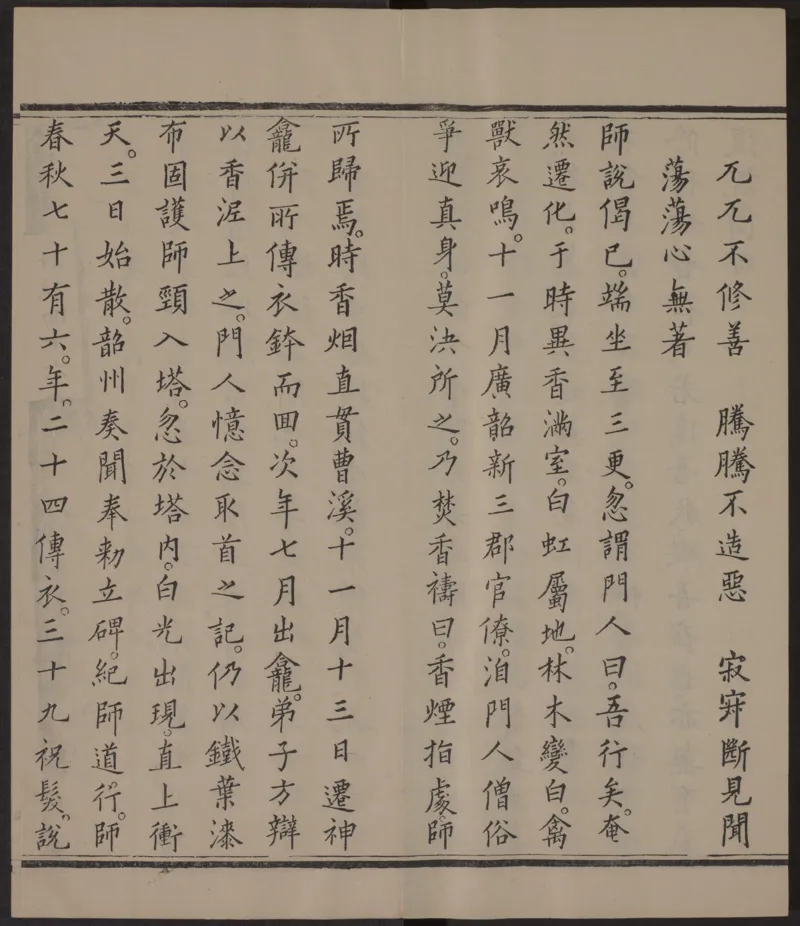 兀兀不修善　騰騰不造惡　寂寂斷見聞
蕩蕩心無著
師說偈已。端坐至三更。忽謂門人曰。吾行矣。奄
然遷化。于時異香滿室。白虹屬地。林木變白。禽
獸哀鳴。十一月廣韶新三郡官僚。洎門人僧俗
爭迎真身。莫決所之。乃焚香禱曰。香煙指處。師
所歸焉。時香烟直貫曹溪。十一月十三日遷神
龕併所傳衣鉢而回。次年七月出龕。弟子方辯
以香泥上之。門人憶念取首之記。仍以鐵葉漆
布固護師頸入塔。忽於塔內。白光出現。直上衝
天。三日始散。韶州奏聞奉勑立碑。紀師道行。師
春秋七十有六。年。二十四傳衣。三十九祝髮。說